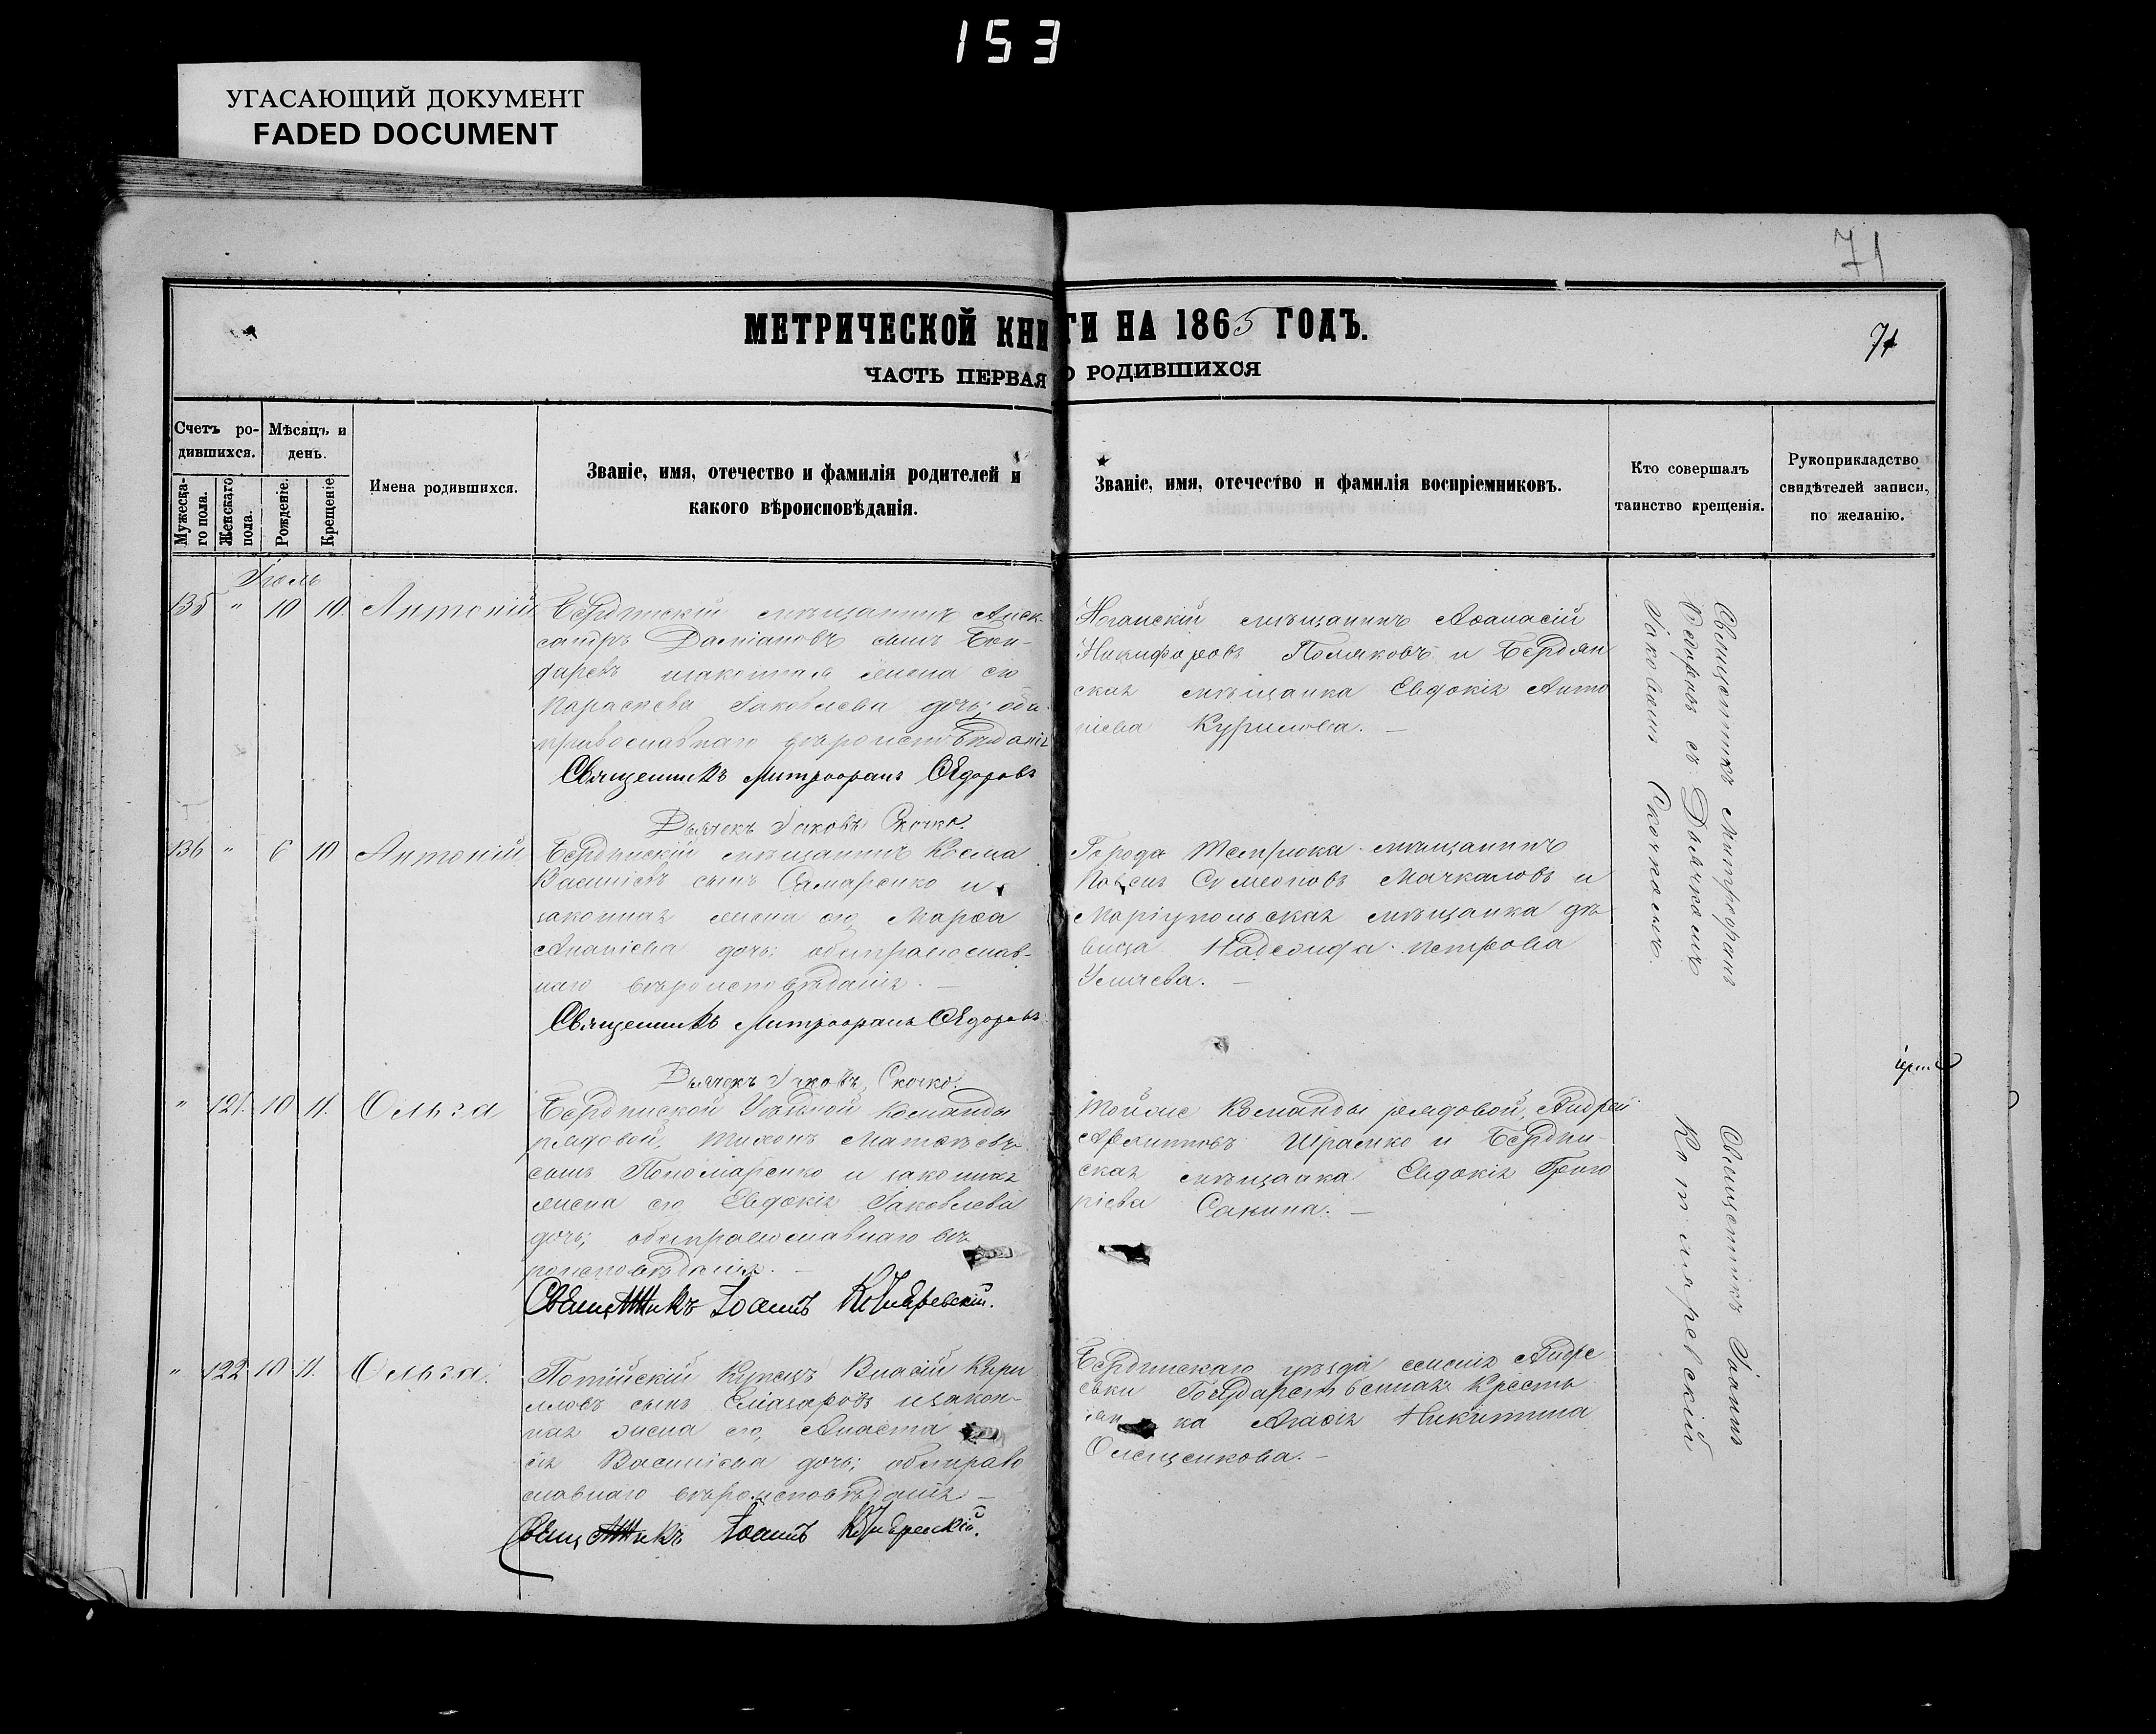 153
УГАСАЮЩИЙ ДОКУМЕНТ
FADED DOCUMENT
71
МЕТРИЧЕСКОЙ КНИГИ НА 1865 ГОДЪ.
71
ЧАСТЬ ПЕРВАЯ О РОДИВШИХСЯ
Счетъ ро-
дившихся.
Мужеска-
го пола.
Женскаго
пола.
Мѣсяцъ и
день.
Рожденіе.
Крещеніе.
Имена родившихся.
Званіе, имя, отечество и фамилія родителей и
какого вѣроисповѣданія.
Званіе, имя, отечество и фамилія воспріемниковъ.
Кто совершалъ
таинство крещенія.
Рукоприкладство
свидѣтелей записи,
по желанію.
Іюль
135 " 10 10. Антоній
Бердянскій мѣщанинъ Алек-
сандръ Даміановъ сынъ Бон-
даревъ законная жена его
Параскева Іаковлева дочь; оба
православнаго вѣроисповѣданія
Священникъ Митрофанъ Ѳедоровъ
Дьячекъ Іаковъ Скочко.
мѣщанинъ Аѳанасій
Никифоровъ Поляковъ и Бердян
ская мѣщанка Евдокія Анто
ніева Курилова. —
Священникъ Митрофанъ
Ѳедоровъ съ Дьячкомъ
Іаковомъ Скочкомъ.
136 " 6 10 Антоній
Бердянскій мѣщанинъ Косма
Василіевъ сынъ Самаренко и
законная жена его Марѳа
Ананіева дочь; оба православ-
наго вѣроисповѣданія. —
Священникъ Митрофанъ Ѳедоровъ
Дьячекъ Іаковъ Скочко.
Города Темрюка мѣщанинъ
Симеоновъ Мачкаловъ и
Маріупольская мѣщанка дѣ
вица Надежда Петрова
" 121. 10 11. Ольга
Бердянской Уѣздной команды
рядовой, Тихонъ Матвѣевъ
сынъ Пономаренко и законная
жена его Евдокія Іаковлева
дочь; оба православнаго вѣ
роисповѣданія. —
Священникъ Іоаннъ Котляревскій.
Тойже команды рядовой, Андрей
Шрамко и Бердян-
ская мѣщанка Евдокія Григо
ріева Сакина. —
Священникъ Іоаннъ
Котляревскій
" 122 10 11. Ольга.
Потійскій Купецъ Власій Кири
лловъ сынъ Еліазаровъ и закон-
ная жена его, Анаста
сія Василіева дочь; оба право
славнаго вѣроисповѣданія —
Священникъ Іоаннъ Котляревскій.
Бердянскаго уѣзда селенія Андре
евки Государственная Крестья
ян ка Агаѳія Никитина
Олещенкова. —